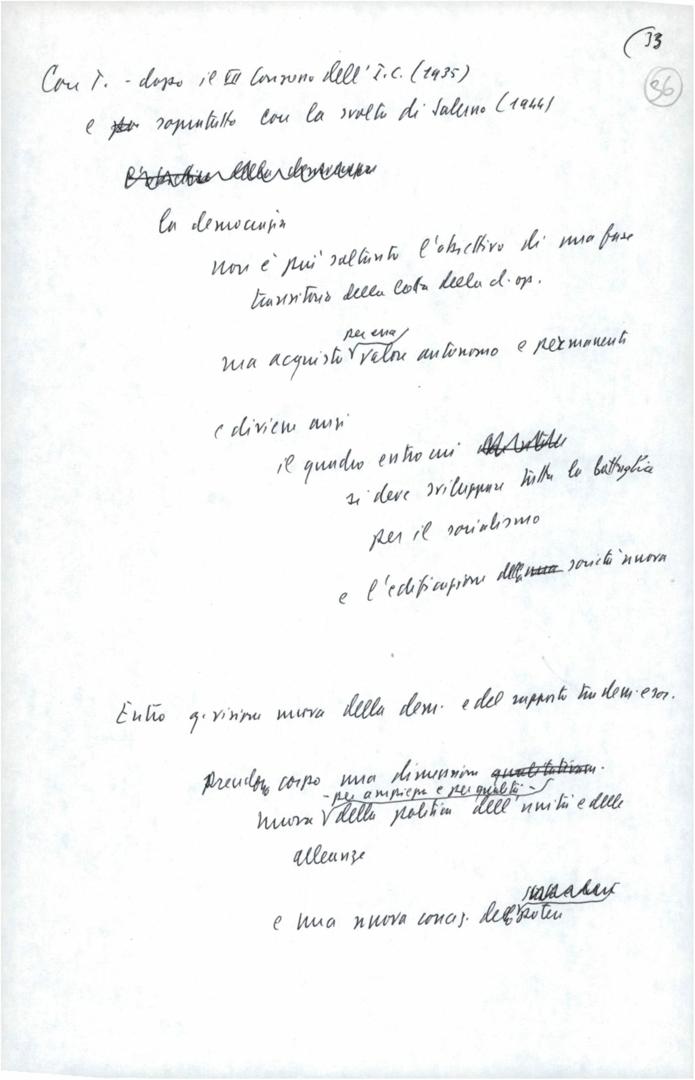 33
36
Con T. - dopo il VII Congresso dell'I.C. (1935)
e soprattutto con la svolta di Salerno (1944)
la democrazia
non è più soltanto l'obiettivo di una fase
transitoria della lotta della cl. op.
per essa
ma acquista valore autonomo e permanente
e diviene anzi
il quadro entro cui
si deve sviluppare tutta la battaglia
per il socialismo
e l'edificazione della società nuova
Entro q. visione nuova della dem. e del rapporto tra dem. e soc.
prendono corpo una dimensione qualitativam.
- per ampiezza e per qualità -
nuova della politica dell'unità e delle
alleanze
e una nuova concez. del potere